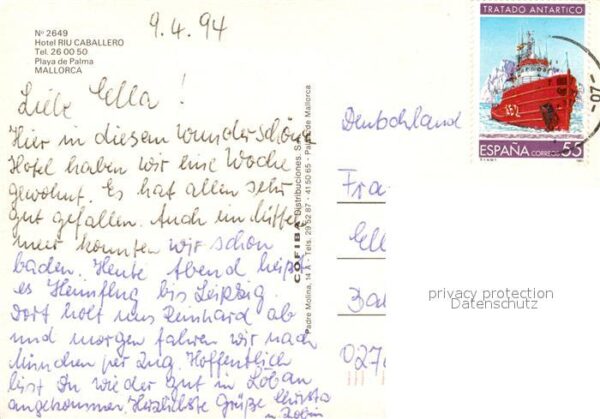 Nº 2649
Hotel RIU CABALLERO
Tel. 26 00 50
Playa de Palma
MALLORCA
9.4.94
Liebe Ella!
Hier in diesem wunderschön
Hotel haben wir eine Woche
gewohnt. Es hat allen sehr
gut gefallen. Auch im Mittel
meer konnten wir schon
baden. Heute Abend heißt
es Heimflug bis Leipzig.
Dort holt uns Reinhard ab
und morgen fahren wir nach
München per Zug. Hoffentlich
bist Du wieder gut in Löbau
angekommen. Herzlichste Grüße Christa
u. Robin
COFIBA Distribuciones, S.A.
Padre Molina, 14 A - Tels. 29 52 87 - 41 50 65 - Palma de Mallorca
TRATADO ANTARTICO
ESPAÑA CORREOS 55
-07-
Deutschland
Fra
Ell
Bau
027
privacy protection
Datenschutz